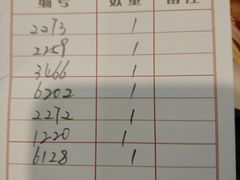 编号 数量 备注
2273 1
2259 1
3466 1
6202 1
2272 1
1220 1
6128 1